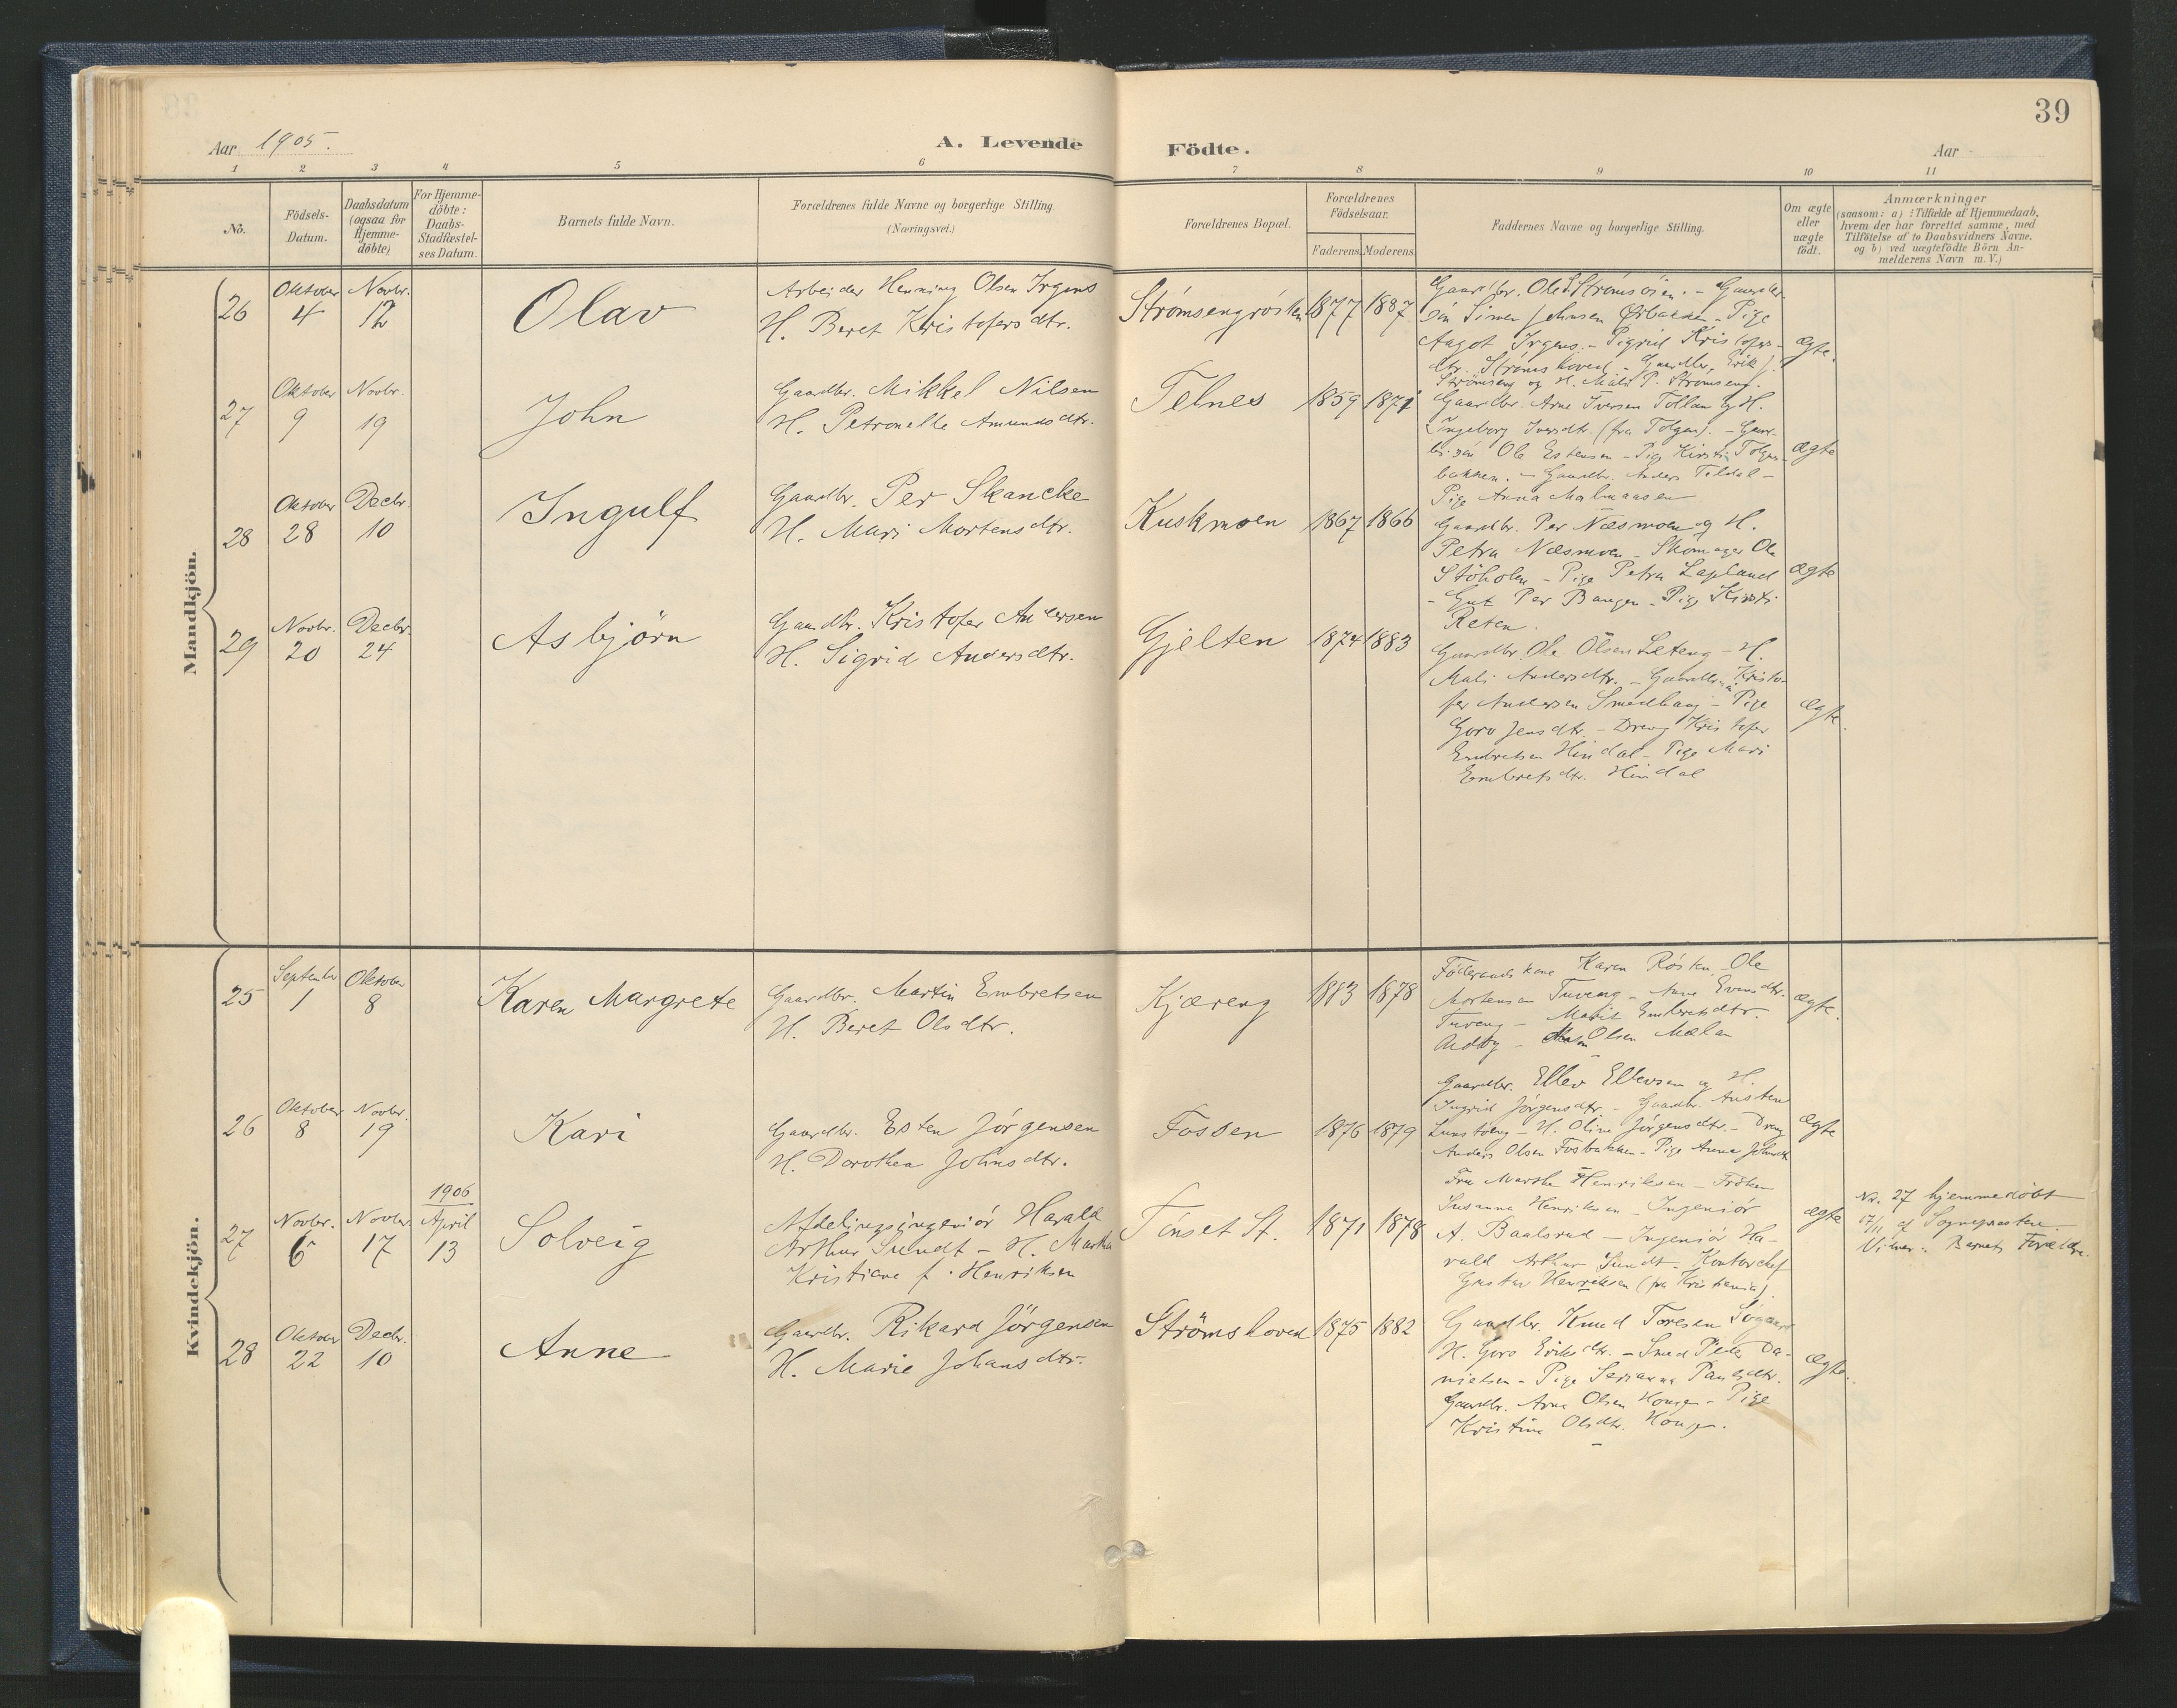 39
Aar 1905.
A. Levende Födte.
Aar
1 2 3 4 5 6 7 8 9 10 11
No.
Födsels-Datum.
Daabsdatum (ogsaa for Hjemme-döbte)
For Hjemme-döbte: Daabs-Stadfæstel-ses Datum.
Barnets fulde Navn.
Forældrenes fulde Navne og borgerlige Stilling.
(Næringsvei.)
Forældrenes Bopæl.
Forældrenes Födselsaar.
Faderens. Moderens.
Faddernes Navne og borgerlige Stilling.
Om ægte eller uægte födt.
Anmærkninger
(saasom: a) i Tilfælde af Hjemmedaab,
hvem der har forrettet samme, med
Tilföielse af to Daabsvidners Navne.
og b) ved uægtefödte Börn An-
melderens Navn m.V.)
Mandkjön.
26
Oktober 4
Novbr. 12
Olav
Arbeider Henning Olsen Irgens
H. Beret Kristofersdtr.
Strömsengrösten
1877 1887
Gaardbr. Ole Strömsöien. - Gaardbr-
sön Simen Johnsen Örbakken - Pige
Aagot Irgens. - Sigrid Kristofers-
dtr. Strömshoved - Gaardbr. Erik
Strömseng og H. Mali P. Strömseng.
ægte.
27
Oktober 9
Novbr. 19
John
Gaardbr. Mikkel Nilsen
H. Petronelle Amundsdtr.
Telnes
1859 1871
Gaardbr. Arne Iversen Tollan og H.
Ingeborg Iversdtr. (fra Tolgen). - Gaar-
br.sön Ole Estensen - Pige Kirsti Tolgens-
bakken. - Gaardbr. Anders Teldal -
Pige Anna Malmaasen
ægte
28
Oktober 28
Decbr. 10
Ingulf
Gaardbr. Per Skancke
H. Mari Mortensdtr.
Kuskmoen
1867 1866
Gaardbr. Per Næsmoen og H.
Petra Næsmoen - Skomager Ole
Stöholen - Pige Petra Lapland
- Gut Per Bangen - Pige Kirsti
Reten.
ægte
29
Novbr. 20
Decbr. 24
Asbjörn
Gaardbr. Kristofer Andersen
H. Sigrid Andersdtr.
Gjelten
1874 1883
Gaardbr. Ole Olsen Leteng - H.
Mali Andersdtr. - Gaardbr. Kristo-
fer Andersen Smedhaug - Pige
Goro Jensdtr. - Dreng Kristofer
Embretsen Hindal - Pige Mari
Embretsdtr. Hindal
ægte.
Kvindekjön.
25
September 1
Oktober 8
Karen Margrete
Gaardbr. Martin Embretsen
H. Beret Olsdtr.
Kjæreng
1883 1878
Föderaadskone Karen Rösten - Ole
Mortensen Tuveng - Anne Evensdtr.
Tuveng - Marit Embretsdtr.
Olsen Mælan
ægte.
26
Oktober 8
Novbr. 19
Kari
Gaardbr. Esten Jörgensen
H. Dorothea Johnsdtr.
Fossen
1876 1879
Gaardbr. Ellev Ellevsen og H.
Ingrid Jörgensdtr. - Gaardbr. Austen
H. Oline Jörgensdtr. - Dreng
Anders Olsen Fosbakken - Pige Anna Johnsdtr
ægte
27
Novbr. 6
Novbr. 17
1906
April
13
Solveig
Afdelingsingeniör Harald
Arthur Sundt - H. Martha
Kristiane f. Henriksen
Tönset St.
1871 1878
Fru Marthe Henriksen - Fröken
Susanna Henriksen - Ingeniör
A. Baalsrud - Ingeniör Ha-
rald Arthur Sundt - Kontorchef
Gustav Henriksen (fra Kristiania).
ægte
Nr. 27 hjemmedöbt
17/11 af Sognepresten.
Vidner: Barnets Forældre.
28
Oktober 22
Decbr. 10
Anne
Gaardbr. Rikard Jörgensen
H. Marie Johansdtr.
Strömshoved
1875 1882
Gaardbr. Knud Toresen
H. Goro Eriksdtr. - Smed Peder Da-
nielsen - Pige Serianna Paulsdtr.
Gaardbr. Arne Olsen Hougen - Pige
Kristine Olsdtr. Hougen.
ægte.